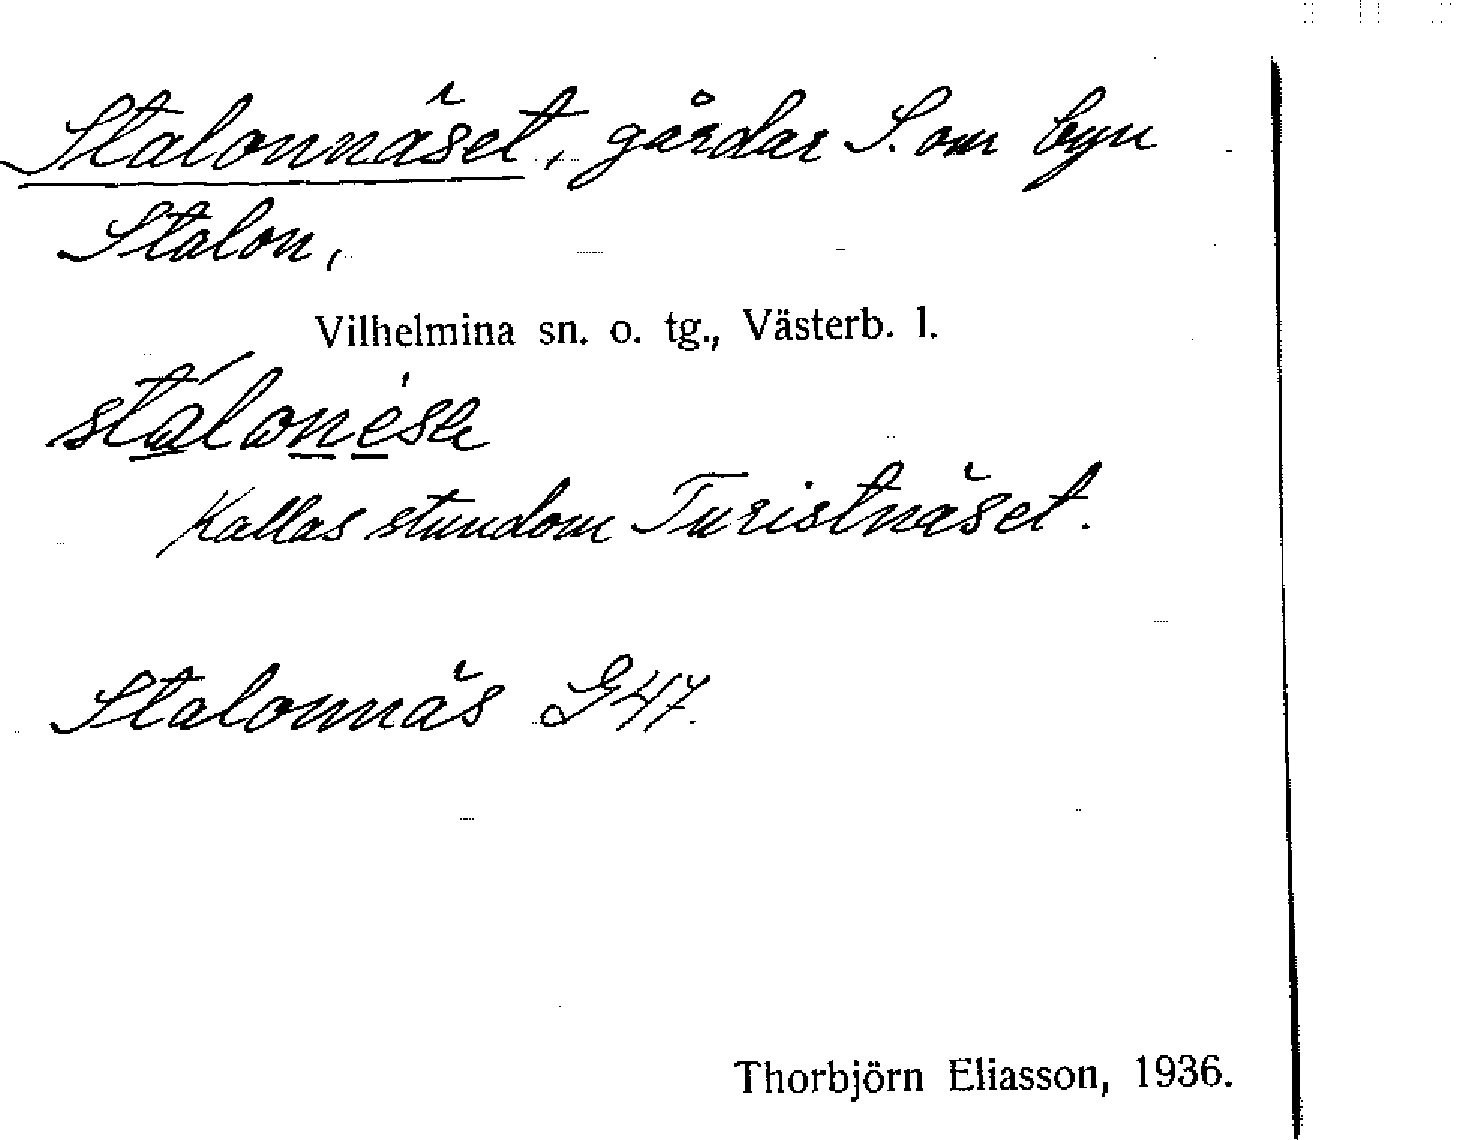 Stalonnäset, gårdar S. om byn
Stalon,
Vilhelmina sn. o. tg., Västerb. l.
Kallas stundom Turistnäset.
Stalonnäs G47.
Thorbjörn Eliasson, 1936.